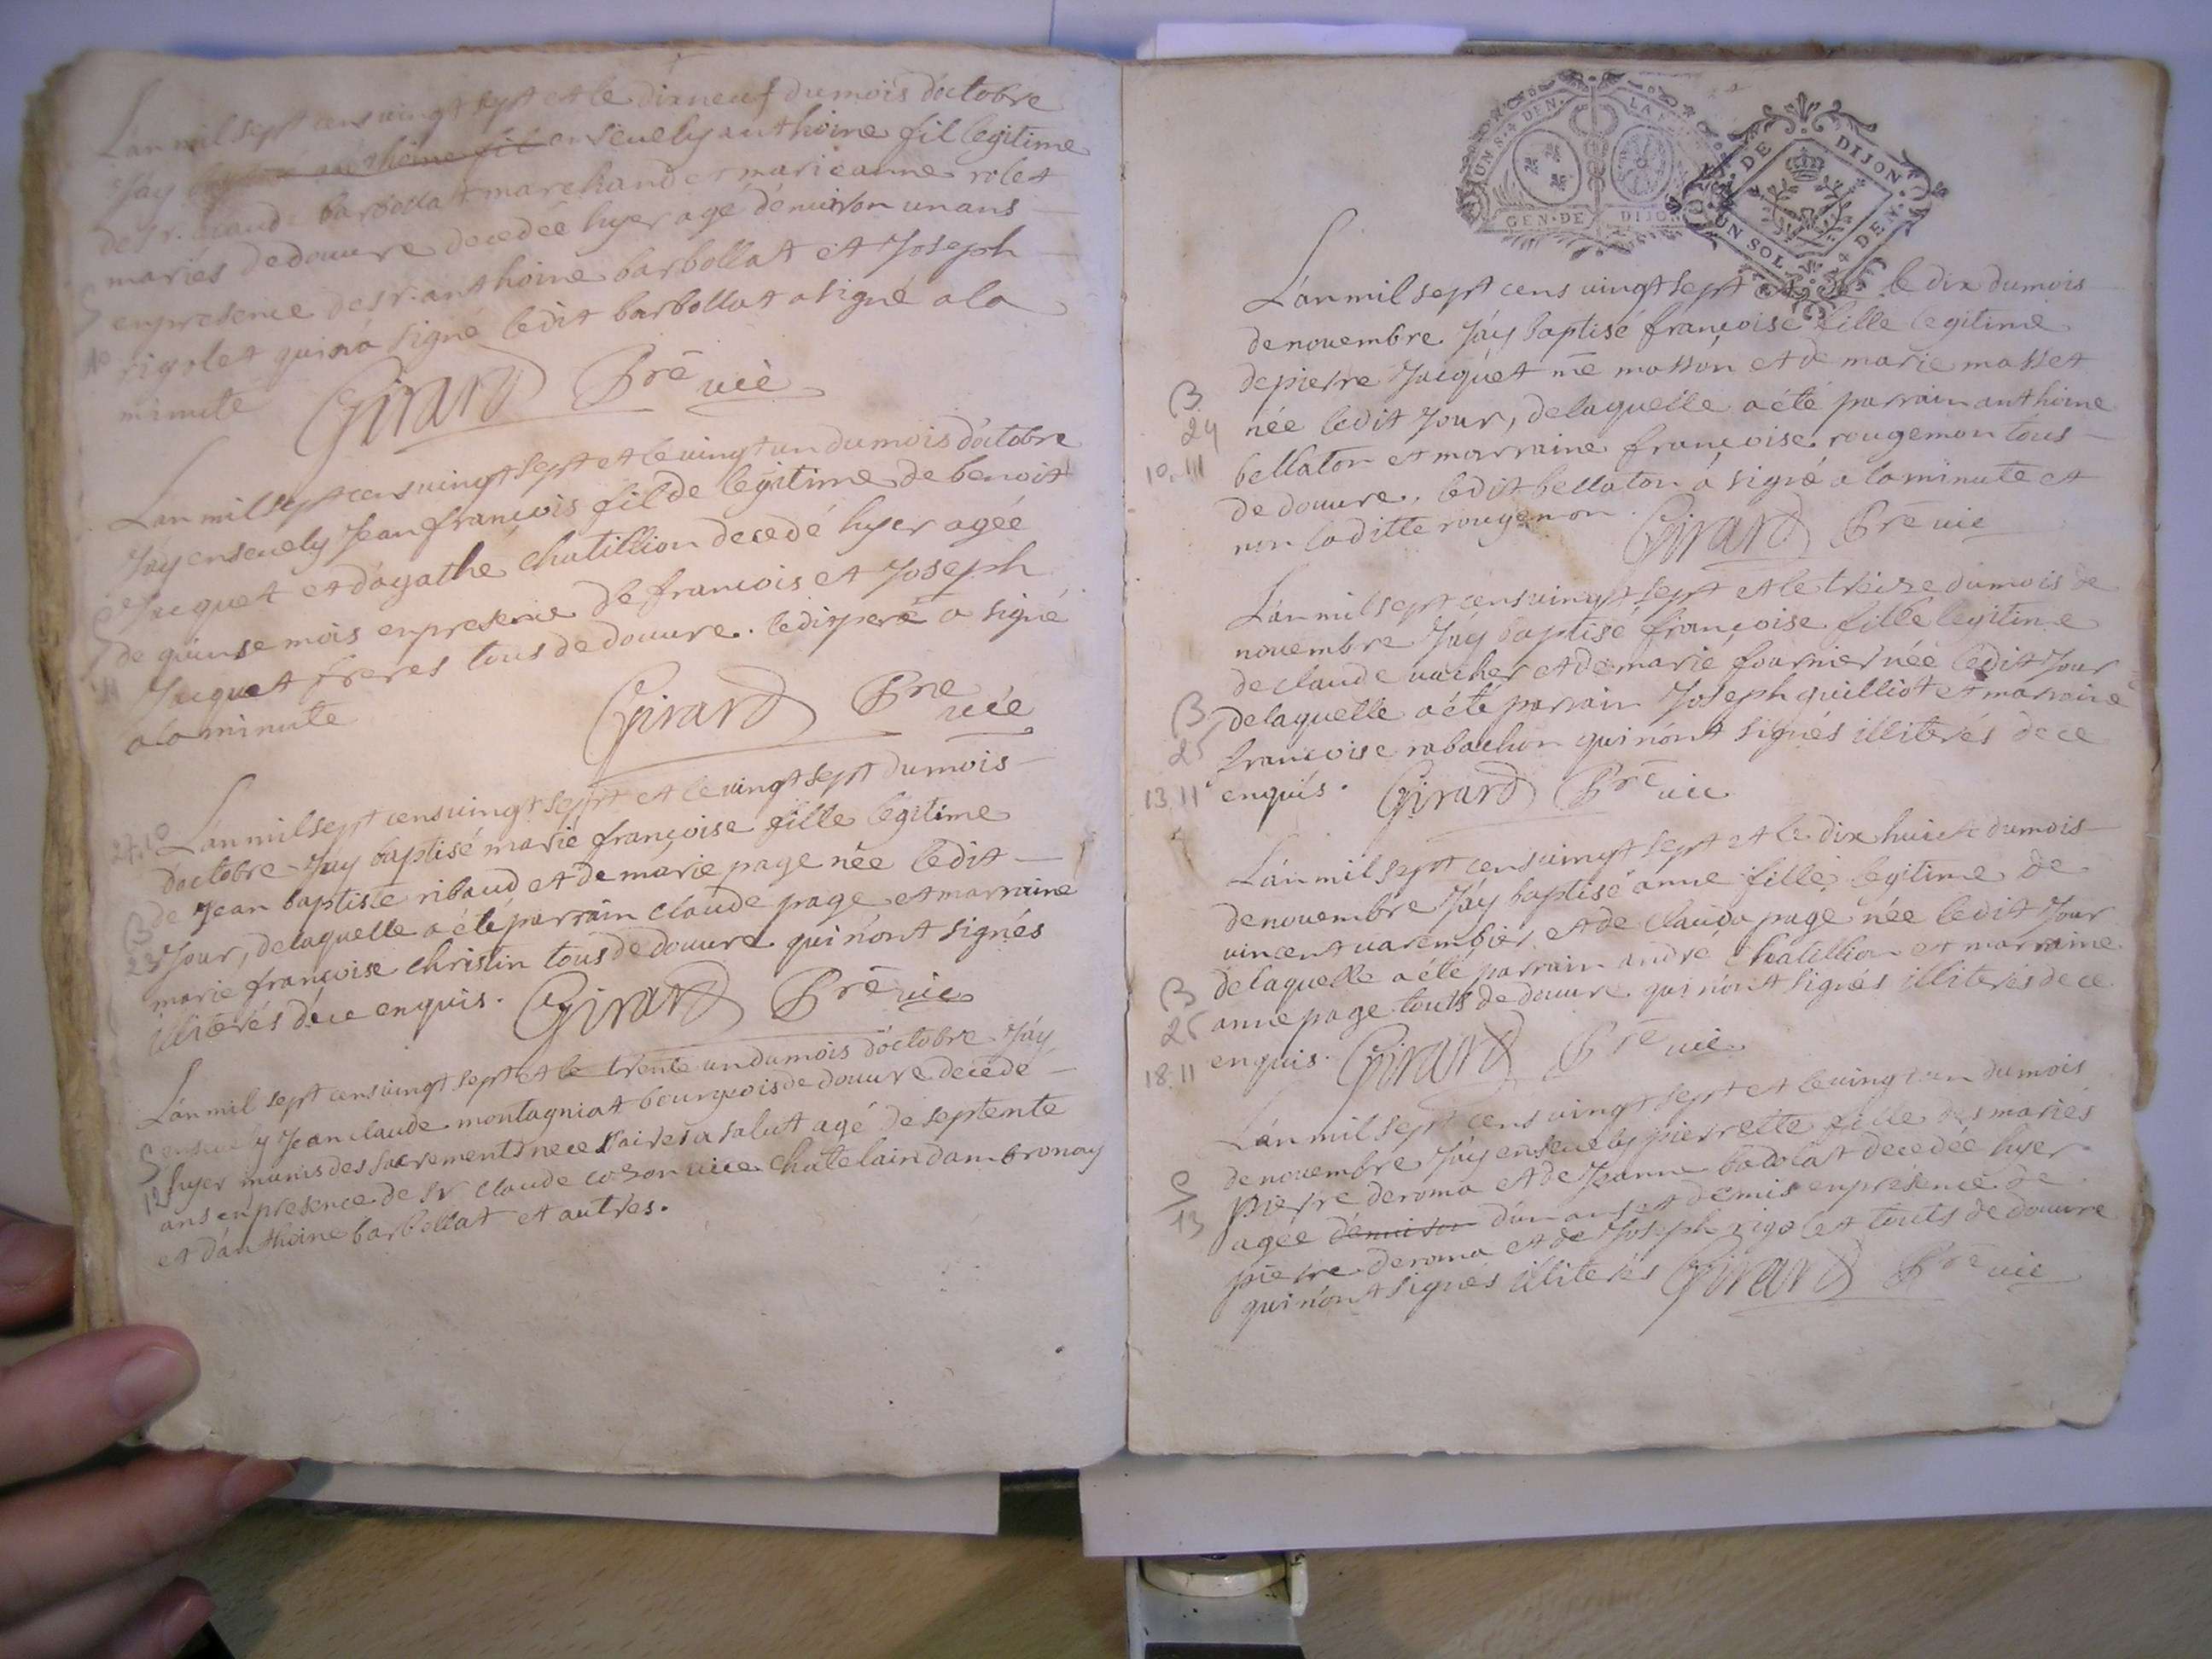 Lan mil sept cens vingt sept et le dix neuf du mois doctobre
Jay enseuely anthoine fil legitime
de sr. claude barbollat marchand et marie anne rolet
maries de douure decedée hyer agé dénuiron un ans
en presence de sr. anthoine barbollat et Joseph
rigolet qui na signé ledit barbollat a signé a la
minute
Girard Bre vic
Lan mil sept cens vingt sept et le vingt un du mois doctobre
Jay enseuely Jean françois fil de legitime de benoit
Jacquet et dagathe chatillion decedé hyer agée
de quinse mois en presence de françois et Joseph
Jacquet freres tous de douure. ledit pere a signé
a la minute
Girard Pre vic
27.10
Lan mil sept cens vingt sept et le vingt sept du mois
doctobre Jáy baptisé marie françoise fille legitime
de Jean baptiste ribaud et de marie page née ledit
B
23
Jour, de laquelle a été parrain claude page et marraine
marie françoise christin tous de douure qui nont signés
illiterés de ce enquis. Girard Bre vic
Lan mil sept cens vingt sept et le trente un du mois doctobre Jáy
S
enseuely Jean claude montagniat bourgeois de douure decede
hyer munis des sacrements necessaires a salut agé de septente
12
ans en presence de sr claude cozon vice chatelain dambronay
et danthoine barbollat et autres.
UN S. 4 DEN. LA
GEN. DE DIJON
DE DIJON
UN SOL 4 DEN.
Lan mil sept cens vingt sept et le dix du mois
de nouembre Jáy baptisé françoise fille legitime
de pierre Jacquet me masson et de marie masset
B
24
10.11
née ledit Jour, de laquelle a été parrain anthoine
bellaton et marraine françoise rougemon tous
de douure. ledit bellaton á signé a la minute et
non laditte rougemon. Girard Bre vic
Lan mil sept cens vingt sept et le treize du mois de
nouembre Jáy baptisé françoise fille legitime
de claude vacher et de marie fournier née ledit Jour
B
25
13.11
de laquelle a été parrain Joseph guilliot et marraine
francoise rabachon qui nónt signés illiterés de ce
enquis. Girard Bre vic
Lan mil sept cens vingt sept et le dix huict du mois
de nouembre Jáy baptisé anne fille legitime de
vincent varembier et de clauda page née ledit Jour
B
26
18.11
de laquelle a été parrain andré chatillion et marraine
anne page touts de douure qui nónt signés illiterés de ce
enquis. Girard Bre vic
Lan mil sept cens vingt sept et le vingt un du mois
de nouembre Jáy enseuely pierrette fille des maries
S
13
pierre deroma et de Jeanne badolat decedée hyer
agée denuiron dun ans et demis en présence de
pierre deroma et de Joseph rigolet touts de douure
qui nónt signés illiterés Girard Bre vic